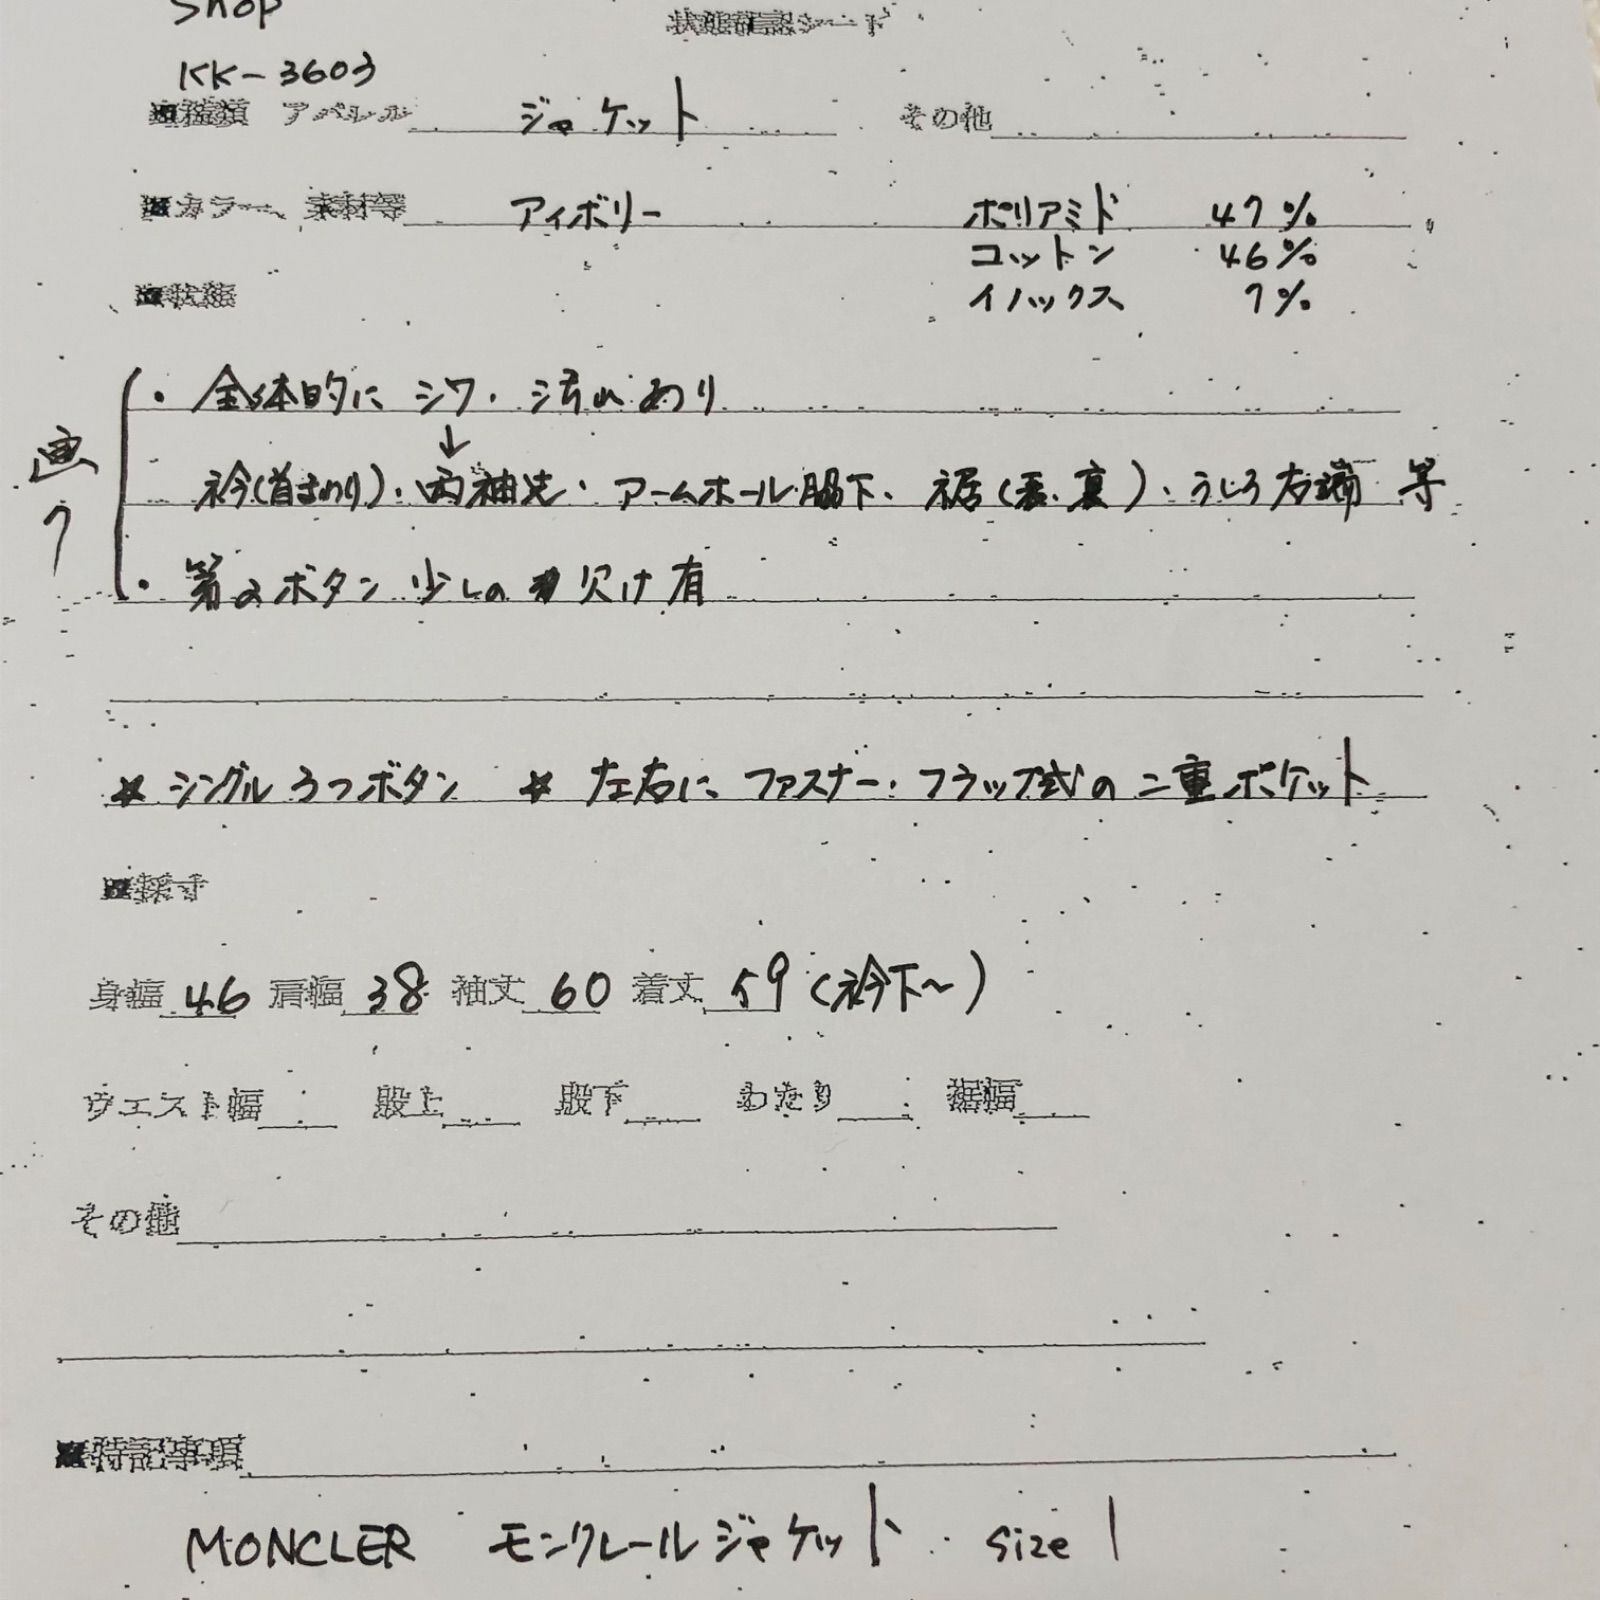 Shop
状態確認シート
KK-3603
■種類 アパレル ジャケット その他
■カラー、素材等 アイボリー ポリアミド 47%
コットン 46%
イハックス 7%
■状態
・全体的に シワ・汚れ あり
↓
画
衿(首まわり)・両袖先・アームホール脇下、裾(表、裏)・うしろ右端 等
・第2ボタン 少しの 欠け有
* シングル 3つボタン * 左右に ファスナー・フラップ式の 二重ポケット
■採寸
身幅 46 肩幅 38 袖丈 60 着丈 59 (衿下~)
ウエスト幅 股上 股下 わたり 裾幅
その他
■特記事項
MONCLER モンクレールジャケット size 1